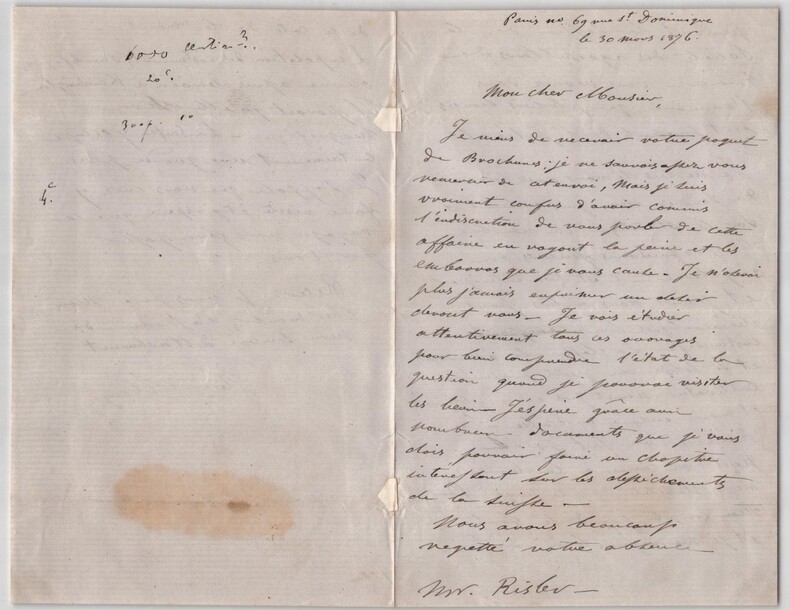 6090 centim
20c.
3 exp. 10
4c.
Paris no. 69 rue St. Dominique
le 30 mars 1876.
Mon cher Monsieur,
Je viens de recevoir votre paquet
de Brochures: je ne saurois assez vous
remercier de cet envoi, Mais je suis
vraiment confus d'avoir commis
l'indiscretion de vous parler de cette
affaire en voyant la peine et les
embarras que je vous cause - Je n'oserai
plus jamais exprimer un desir
devant vous - Je vais étudier
attentivement tous ces ouvrages
pour bien comprendre l'état de la
question quand je pourrai visiter
les lieux - J'éspère grâce aux
nombreux documents que je vous
dois pouvoir faire un chapitre
interessant sur les dessèchements
de la Suisse -
Nous avons beaucoup
regretté votre absence
Mr. Risler -